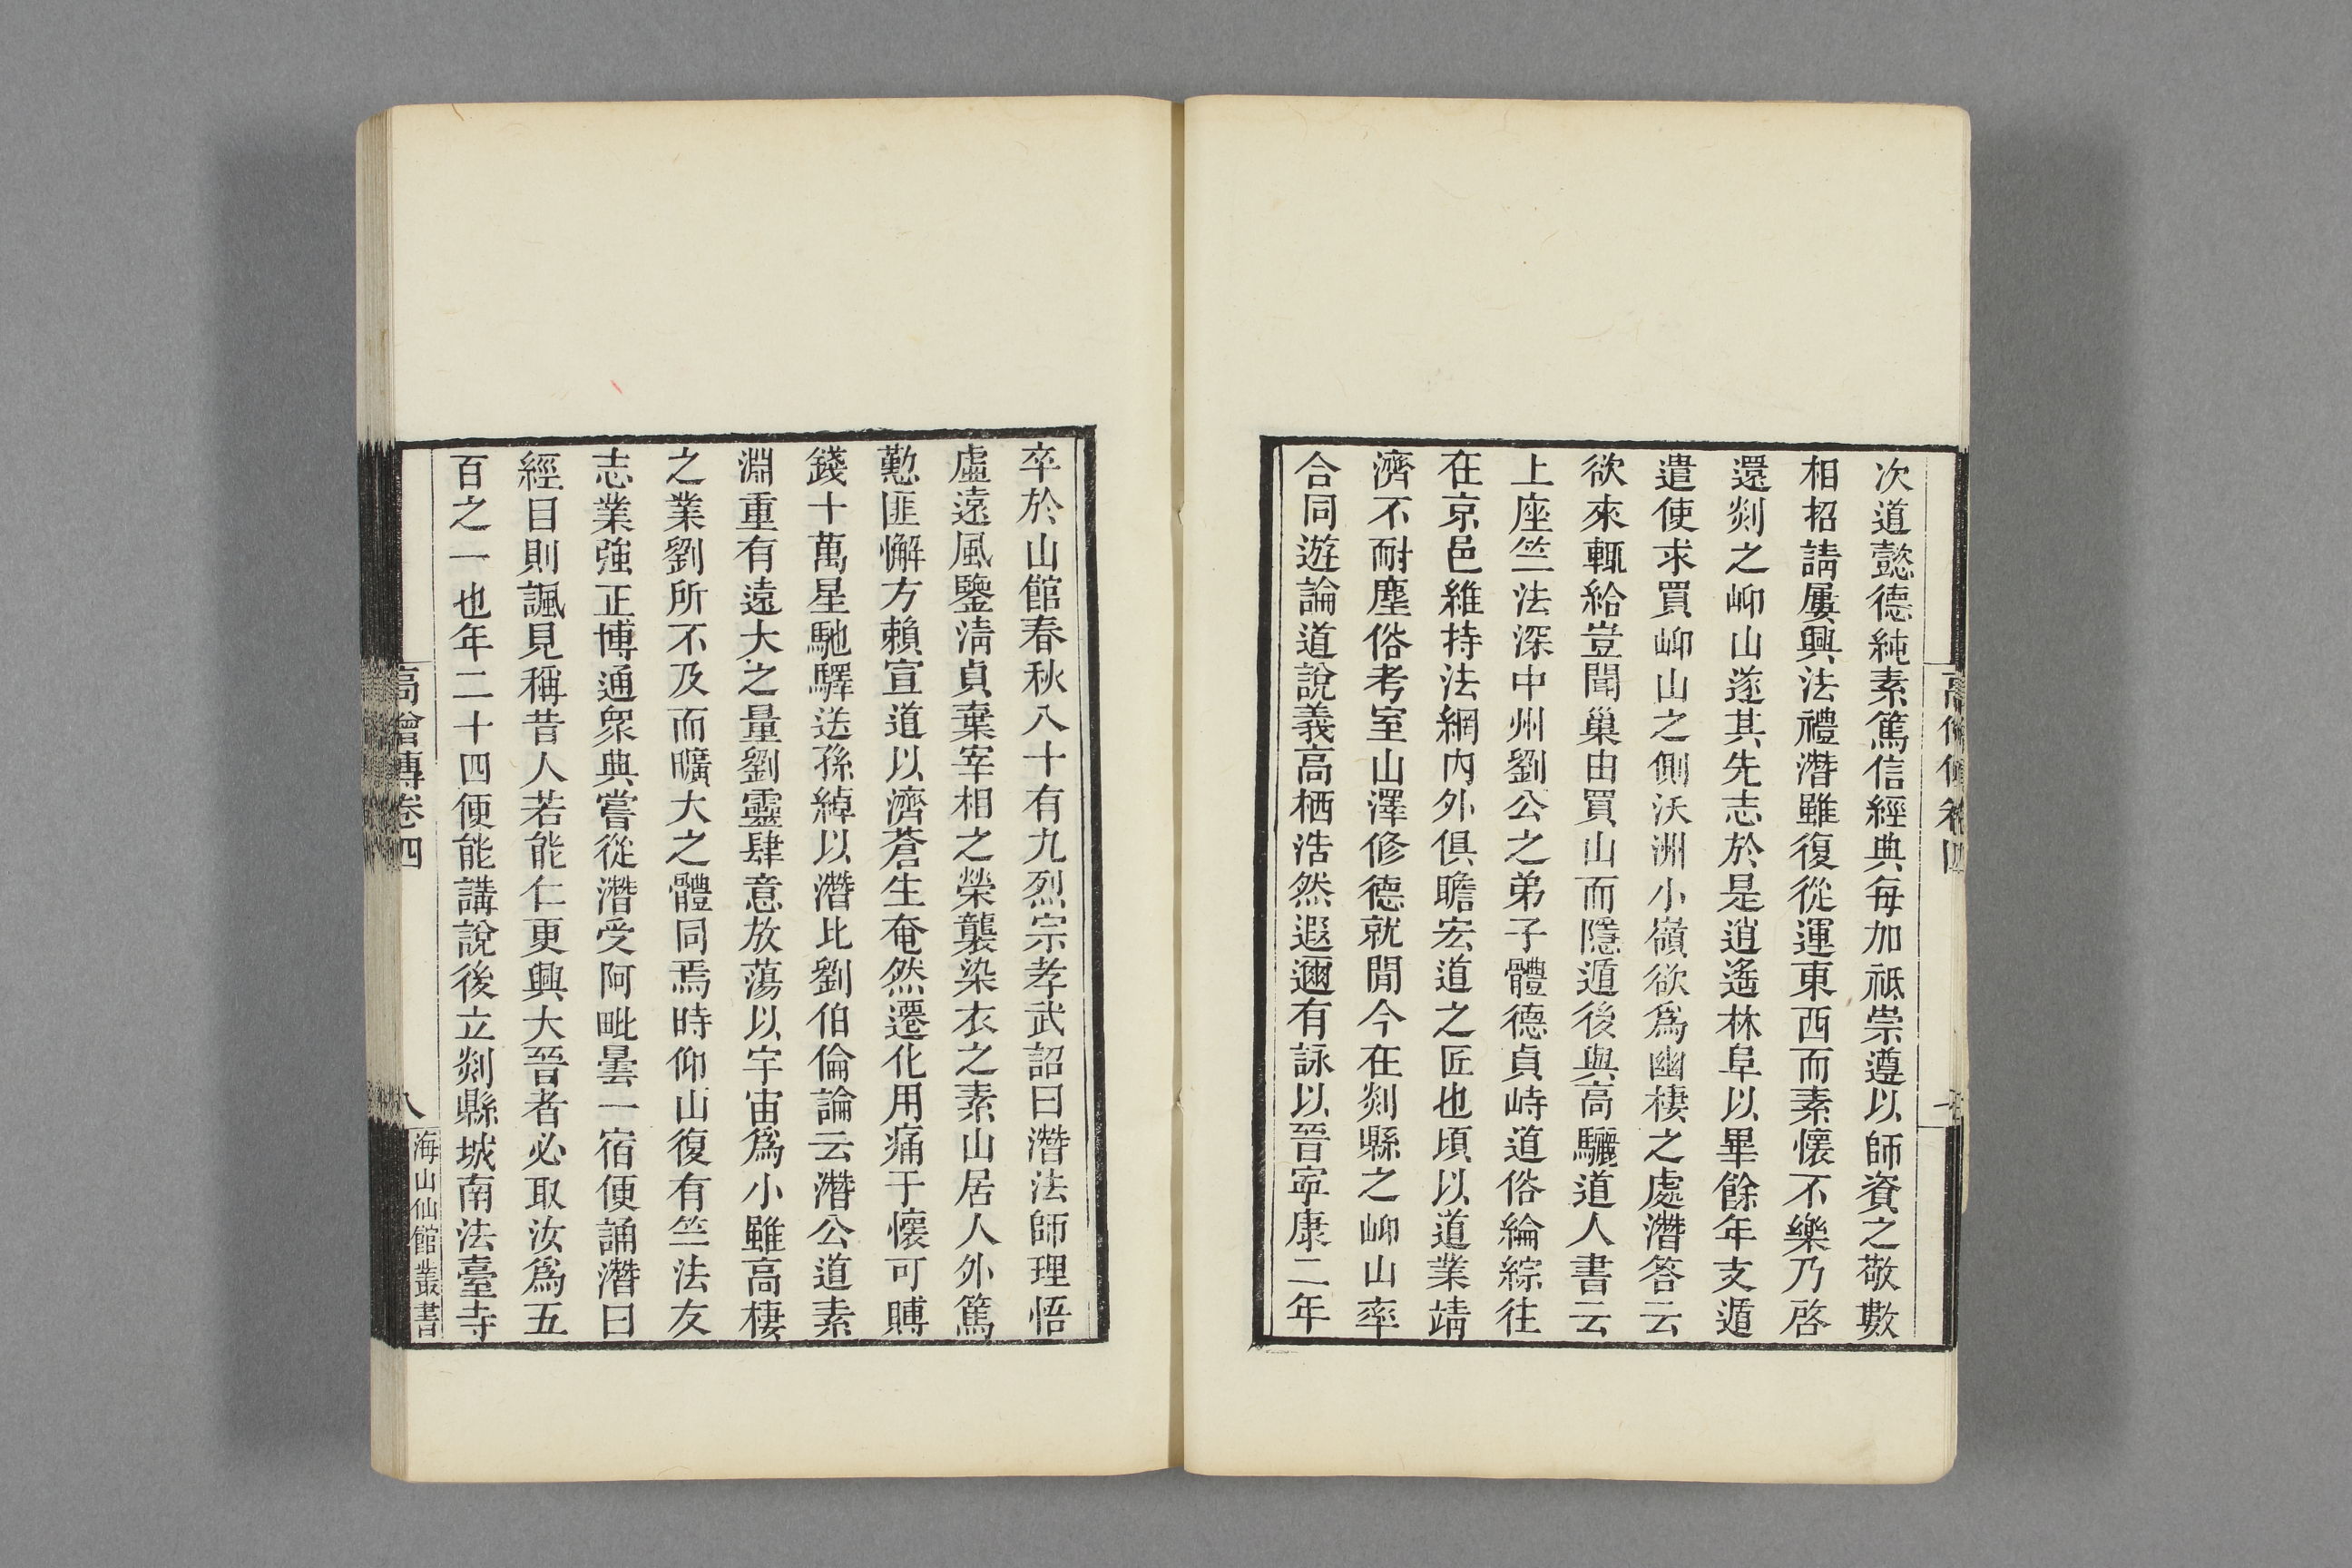 次道懿德純素篤信經典每加祗崇遵以師資之敬數
相招請屢興法禮潛雖復從運東西而素懷不樂乃啓
還剡之岬山遂其先志於是逍遙林阜以畢餘年支遁
遣使求買岬山之側沃洲小嶺欲爲幽棲之處潛答云
欲來輒給豈聞巢由買山而隱遁後與高驪道人書云
上座竺法深中州劉公之弟子體德貞峙道俗綸綜往
在京邑維持法網內外俱瞻宏道之匠也頃以道業靖
濟不耐塵俗考室山澤修德就閒今在剡縣之岬山率
合同遊論道說義高栖浩然遐邇有詠以晉寧康二年
卒於山館春秋八十有九烈宗孝武詔曰潛法師理悟
虛遠風鑒淸貞棄宰相之榮襲染衣之素山居人外篤
懃匪懈方賴宣道以濟蒼生奄然遷化用痛于懷可賻
錢十萬星馳驛送孫綽以潛比劉伯倫論云潛公道素
淵重有遠大之量劉靈肆意放蕩以宇宙爲小雖高棲
之業劉所不及而曠大之體同焉時仰山復有竺法友
志業強正博通衆典嘗從潛受阿毗曇一宿便誦潛曰
經目則諷見稱昔人若能仁更興大晉者必取汝爲五
百之一也年二十四便能講說後立剡縣城南法臺寺
高僧傳卷四
八
海山仙館叢書